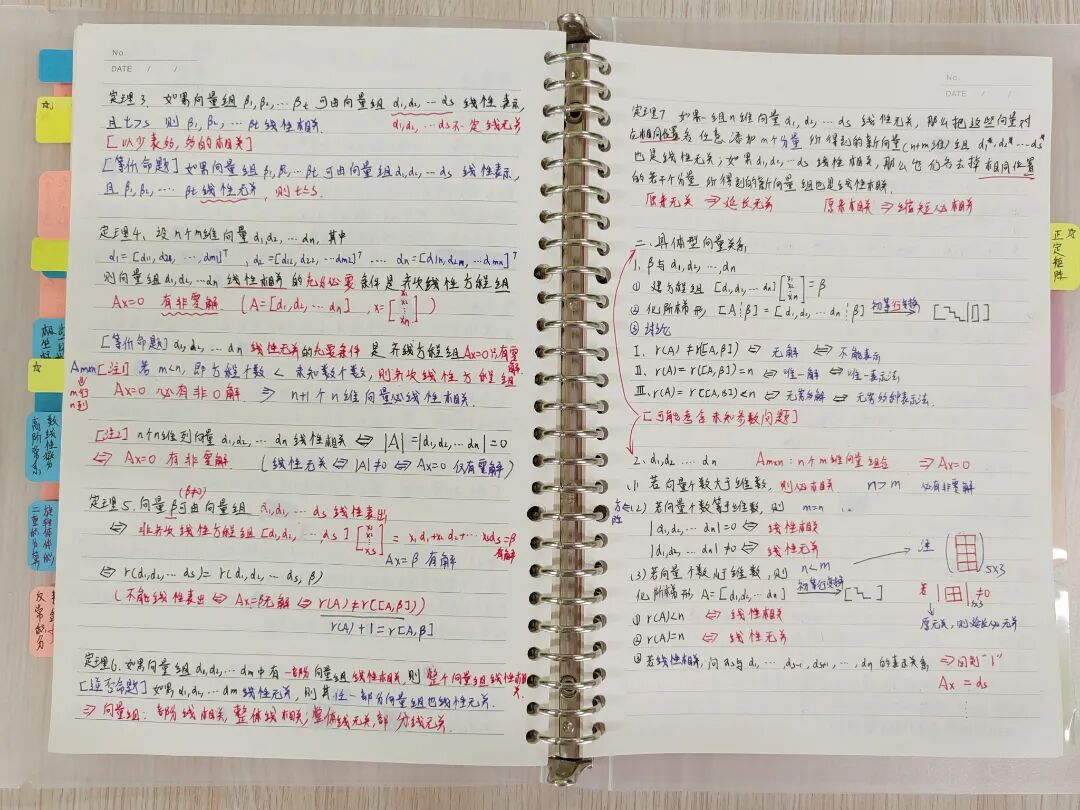 No.
DATE / /
定理3. 如果向量组 β₁,β₂,…βt 可由向量组 α₁,α₂,…αs 线性表示,
且 t>s 则 β₁,β₂,…βt 线性相关. α₁,α₂,…αs不一定线无关
[以少表多,多的相关]
[等价命题] 如果向量组 β₁,β₂,…βt 可由向量组 α₁,α₂,…αs 线性表示,
且 β₁,β₂,…βt 线性无关, 则 t≤s.
定理4、设 n个m维向量 α₁,α₂,…αn, 其中
α₁=[α₁₁,α₂₁, …αm₁]ᵀ, α₂=[α₁₂,α₂₂,…αm₂]ᵀ …. αn=[α₁n,α₂n,…αmn]ᵀ
则向量组 α₁,α₂,…αn 线性相关的充分必要条件是齐次线性方程组
Ax=0 有非零解 (A=[α₁,α₂,…αn], x=[x₁ x₂ ⋮ xn])
[等价命题] α₁,α₂,…αn 线性无关的充要条件是齐线方程组Ax=0只有零解.
Amxn
m行
n列
[注1] 若 m<n, 即方程个数 < 未知数个数, 则齐次线性方程组
Ax=0 必有非0解 ⇒ n+1个n维向量必线性相关.
[注2] n个n维列向量 α₁,α₂,…αn 线性相关 ⇔ |A|=|α₁,α₂,…αn|=0
⇔ Ax=0 有非零解. (线性无关⇔|A|≠0⇔Ax=0 仅有零解)
(β≠0)
定理5.向量β可由向量组 α₁,α₂,…αs 线性表出
⇔ 非齐次线性方程组[α₁,α₂,…αs][x₁ x₂ ⋮ xs] = x₁α₁+x₂α₂+…xsαs=β 有解
Ax=β 有解
⇔ r(α₁,α₂,…αs)=r(α₁,α₂,…αs,β)
(不能线性表出⇔Ax=β无解⇔r(A)≠r([A,β]))
r(A)+1=r[A,β]
定理6.如果向量组 α₁,α₂,…αm中有一部分向量组线性相关,则整个向量组线性相关.
[逆否命题]如果 α₁,α₂,…αm 线性无关, 则其任一部分向量组也线性无关.
⇒ 向量组: 部分线相关,整体线相关;整体线无关,部分线无关.
No.
DATE / /
定理7 如果一组n维向量 α₁,α₂,…αs 线性无关, 那么把这些向量对
在相同位置各任意添加m个分量所得到的新向量(n+m维)组 α₁*,α₂*…αs*
也是线性无关;如果 α₁,α₂,…αs 线性相关,那么它们各去掉相同位置
的若干个分量所得到的新向量组也是线性相关.
原来无关 ⇒ 延长无关 原来相关 ⇒ 缩短必相关
二、具体型向量关系
1、β与 α₁,α₂,…,αn
① 建方程组 [α₁,α₂,…αn][x₁ x₂ ⋮ xn]=β
② 化阶梯形 [A⋮β]=[α₁,α₂,…αn⋮β] 初等行变换
③ 讨论
Ⅰ. r(A)≠r([A,β]) ⇔ 无解 ⇔ 不能表示
Ⅱ. r(A)=r([A,β])=n ⇔ 唯一解 ⇔ 唯一表示法
Ⅲ. r(A)=r([A,β])<n ⇔ 无穷多解 ⇔ 无穷多种表示法.
[可能考含未知参数问题]
2. α₁,α₂….αn Amxn: n个m维向量组合 ⇒ Ax=0
(1) 若向量个数大于维数, 则必相关 n>m 必有非零解
方阵
(2) 若向量个数等于维数, 则 m=n
|α₁,α₂,…αn|=0 ⇔ 线性相关
|α₁,α₂,…αn|≠0 ⇔ 线性无关
(3) 若向量个数小于维数, 则 n<m
注 5x3
化阶梯形 A=[α₁,α₂,…αn] 初等行变换
若 | |3x3≠0
原无关, 则延长必无关
① r(A)<n ⇔ 线性相关
② r(A)=n ⇔ 线性无关
③ 若线性相关, 问 αs与 α₁,…,αs₋₁,αs₊₁,…,αn 的表示关系 ⇒回到"1"
Ax=αs
正定矩阵